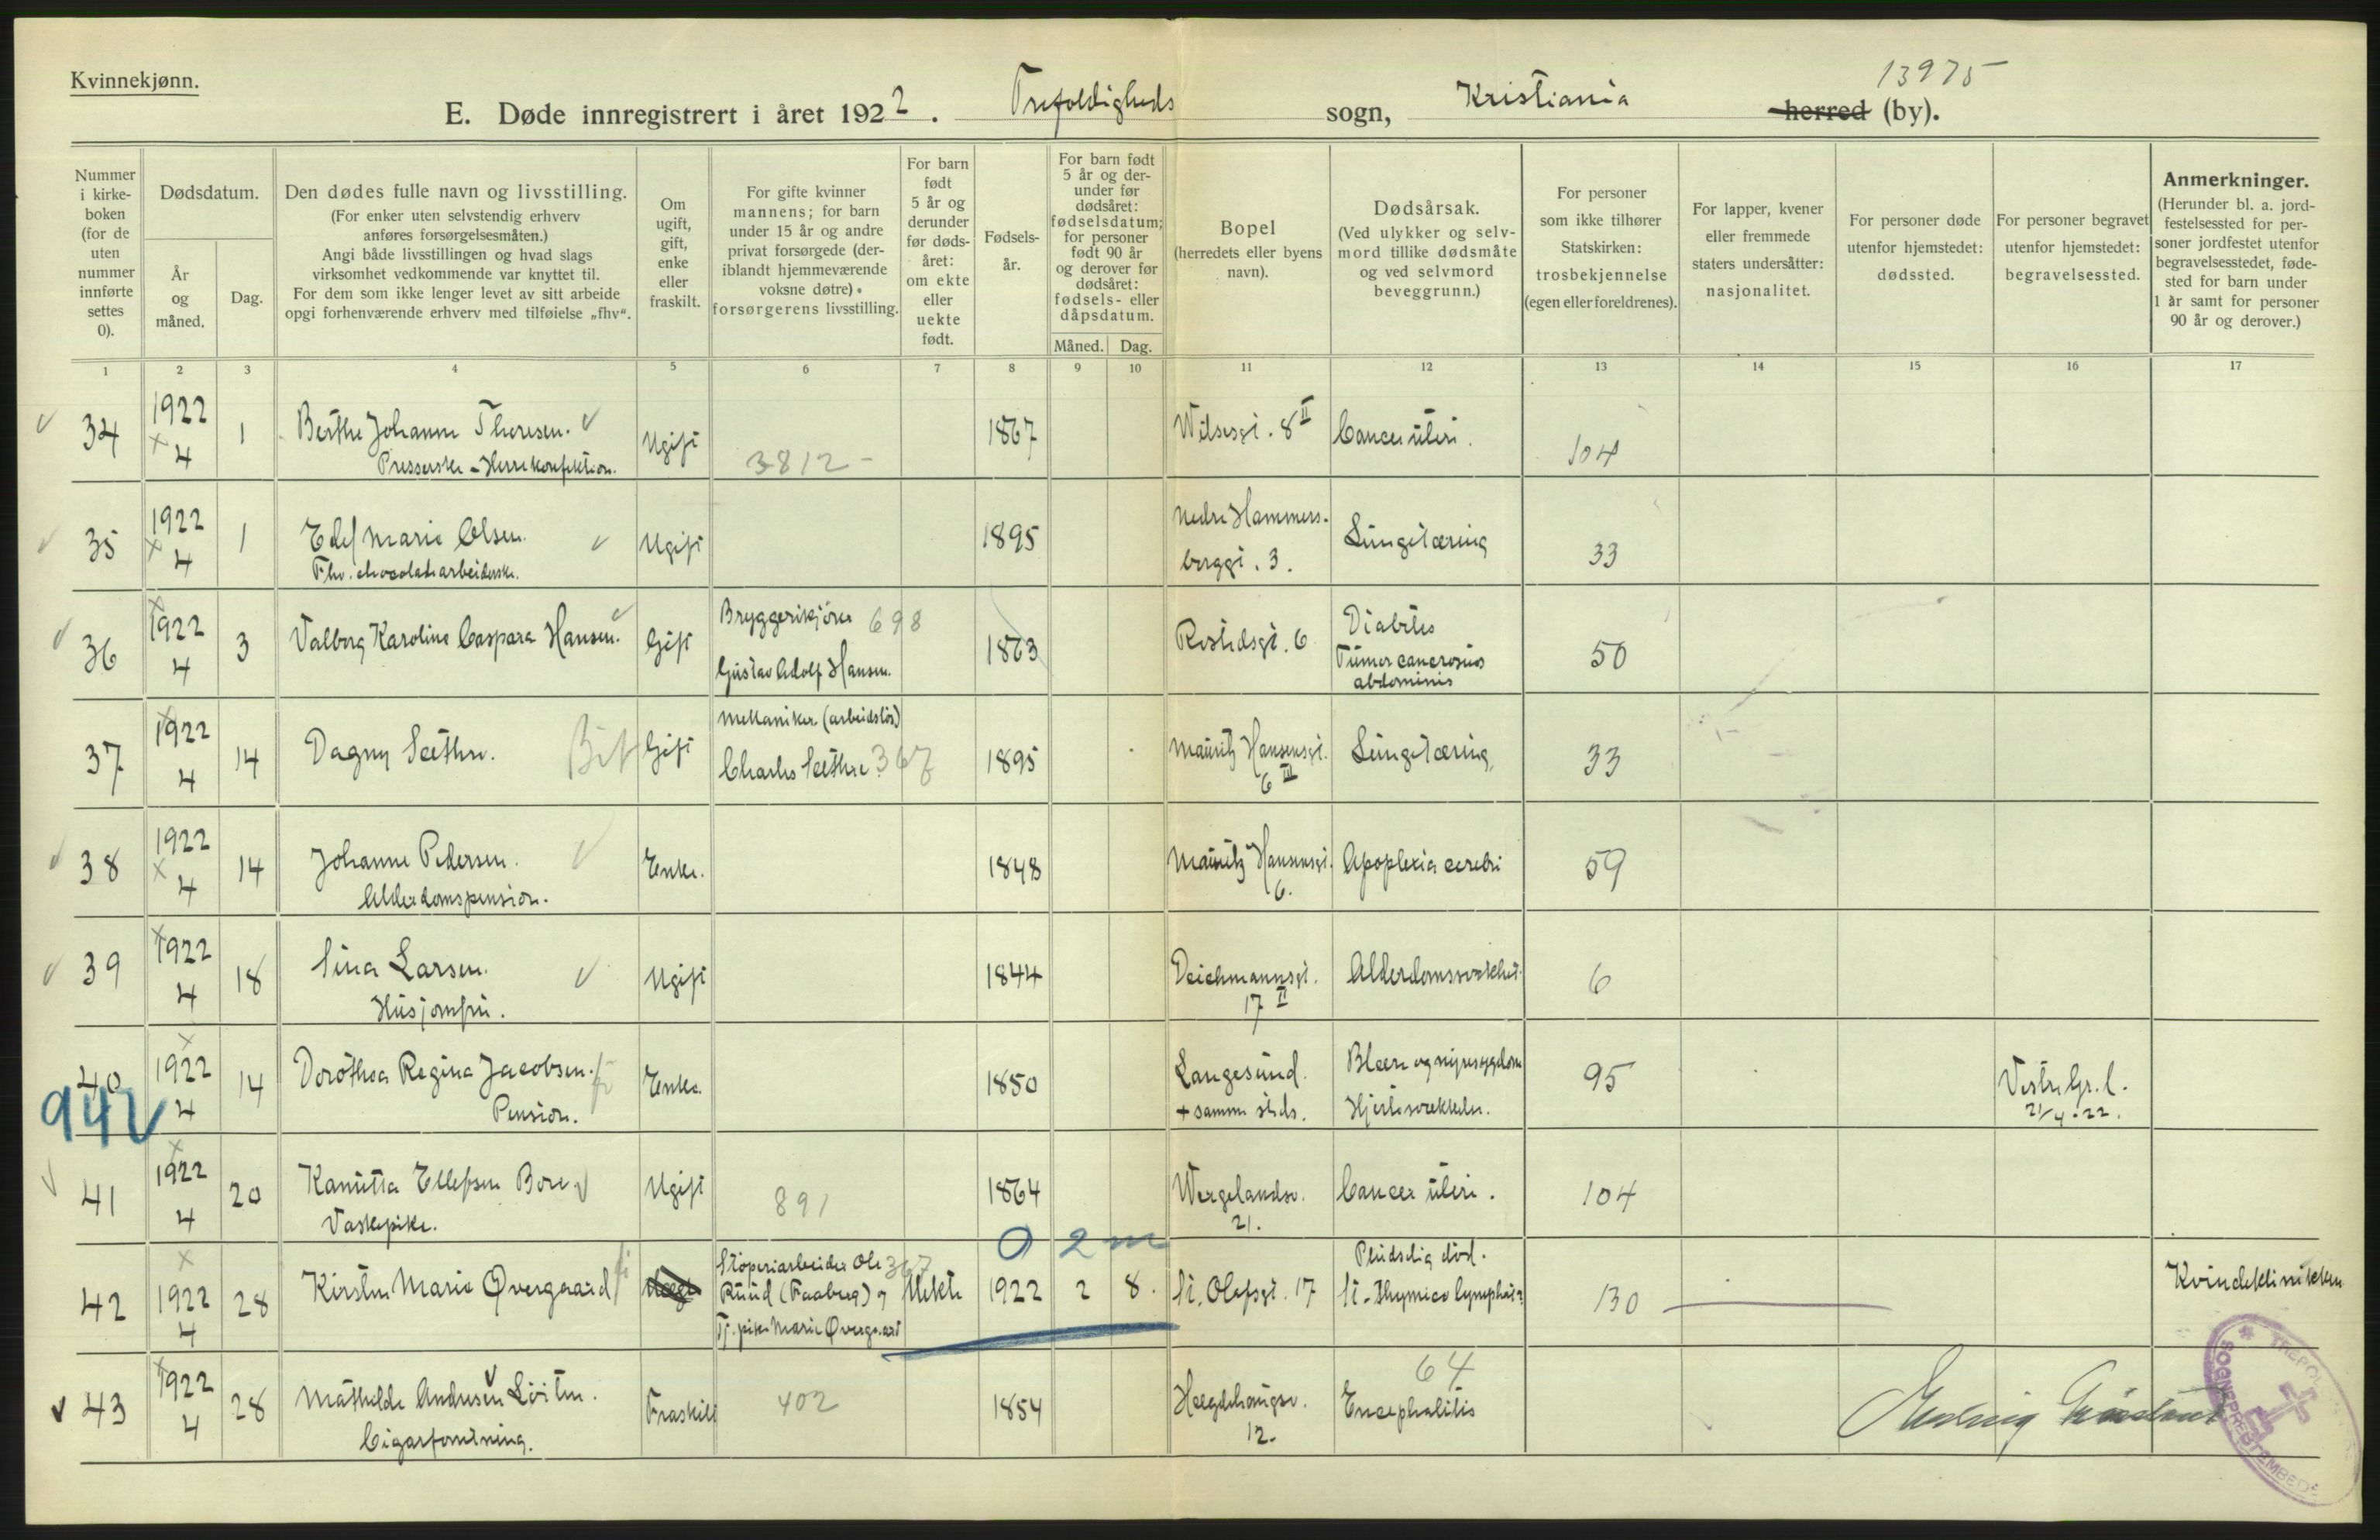 Kvinnekjønn.
13975
E. Døde innregistrert i året 1922. Trefoldigheds sogn, Kristiania herred (by).
Nummer i kirkeboken (for de uten nummer innførte settes 0).
Dødsdatum.
År og måned.
Dag.
Den dødes fulle navn og livsstilling.
(For enker uten selvstendig erhverv anføres forsørgelsesmåten.)
Angi både livsstillingen og hvad slags virksomhet vedkommende var knyttet til.
For dem som ikke lenger levet av sitt arbeide opgi forhenværende erhverv med tilføielse „fhv“.
Om ugift, gift, enke eller fraskilt.
For gifte kvinner mannens; for barn under 15 år og andre privat forsørgede (deriblandt hjemmeværende voksne døtre) forsørgerens livsstilling.
For barn født 5 år og derunder før dødsåret: om ekte eller uekte født.
Fødselsår.
For barn født 5 år og derunder før dødsåret: fødselsdatum; for personer født 90 år og derover før dødsåret: fødsels- eller dåpsdatum.
Måned. Dag.
Bopel (herredets eller byens navn).
Dødsårsak.
(Ved ulykker og selvmord tillike dødsmåte og ved selvmord beveggrunn.)
For personer som ikke tilhører Statskirken: trosbekjennelse (egen eller foreldrenes).
For lapper, kvener eller fremmede staters undersåtter: nasjonalitet.
For personer døde utenfor hjemstedet: dødssted.
For personer begravet utenfor hjemstedet: begravelsessted.
Anmerkninger.
(Herunder bl. a. jordfestelsessted for personer jordfestet utenfor begravelsesstedet, fødested for barn under 1 år samt for personer 90 år og derover.)
1 2 3 4 5 6 7 8 9 10 11 12 13 14 15 16 17
34 1922 4 1 Berthe Johanne Thoresen. Ugift 1867 Wilsesgt. 8 II Cancer uteri. 104
Presserske - Herrekonfektion. 3812 -
35 1922 4 1 Edel Marie Olsen. Ugift 1895 Nedre Hammersborggt. 3. Lungetæring 33
Fhv. chocoladearbeiderske.
36 1922 4 3 Valborg Karoline Caspara Hansen. Gift Bryggerikjører 698 Gustav Adolf Hansen. 1863 Rostedsgt. 6 Diabetes Tumor cancrosus abdominis 50
37 1922 4 14 Dagny Sæthre. Gift Mekaniker (arbeidsløs) Charles Sæthre 367 1895 Mauritz Hansensgt. 6 III Lungetæring 33
38 1922 4 14 Johanne Pedersen. Enke. 1848 Mauritz Hansensgt. 6. Apoplexia cerebri 59
Alderdomspension.
39 1922 4 18 Sina Larsen. Ugift 1844 Deichmannsgt. 17 II Alderdomssvakhet 6
Husjomfru.
40 1922 4 14 Dorothea Regina Jacobsen. Enke. 1850 Langesund. + samme steds. Blære og nyresygdom Hjertesvækkelse. 95 Vestre Gr. l. 21/4-22.
942 Pension.
41 1922 4 20 Kanutta Ellefsen Bore Ugift 891 1864 Wergelandsv. 21. Cancer uteri. 104
Vaskepike.
0 2 m
42 1922 4 28 Kirsten Marie Øvergaard Støperiarbeider Ole 367 Ruud (Faaberg) og Tj. pike Marie Øvergaard Uekte 1922 2 8. St. Olafsgt. 17 Pludselig død. St. Thymico lymphat. 130 Kvindeklinikken
43 1922 4 28 Mathilde Andersen Løiten. Fraskilt 402 1854 Hegdehaugsv. 12. 64 Encephalitis
Cigarforretning.
SOGNEPRESTEMBEDE